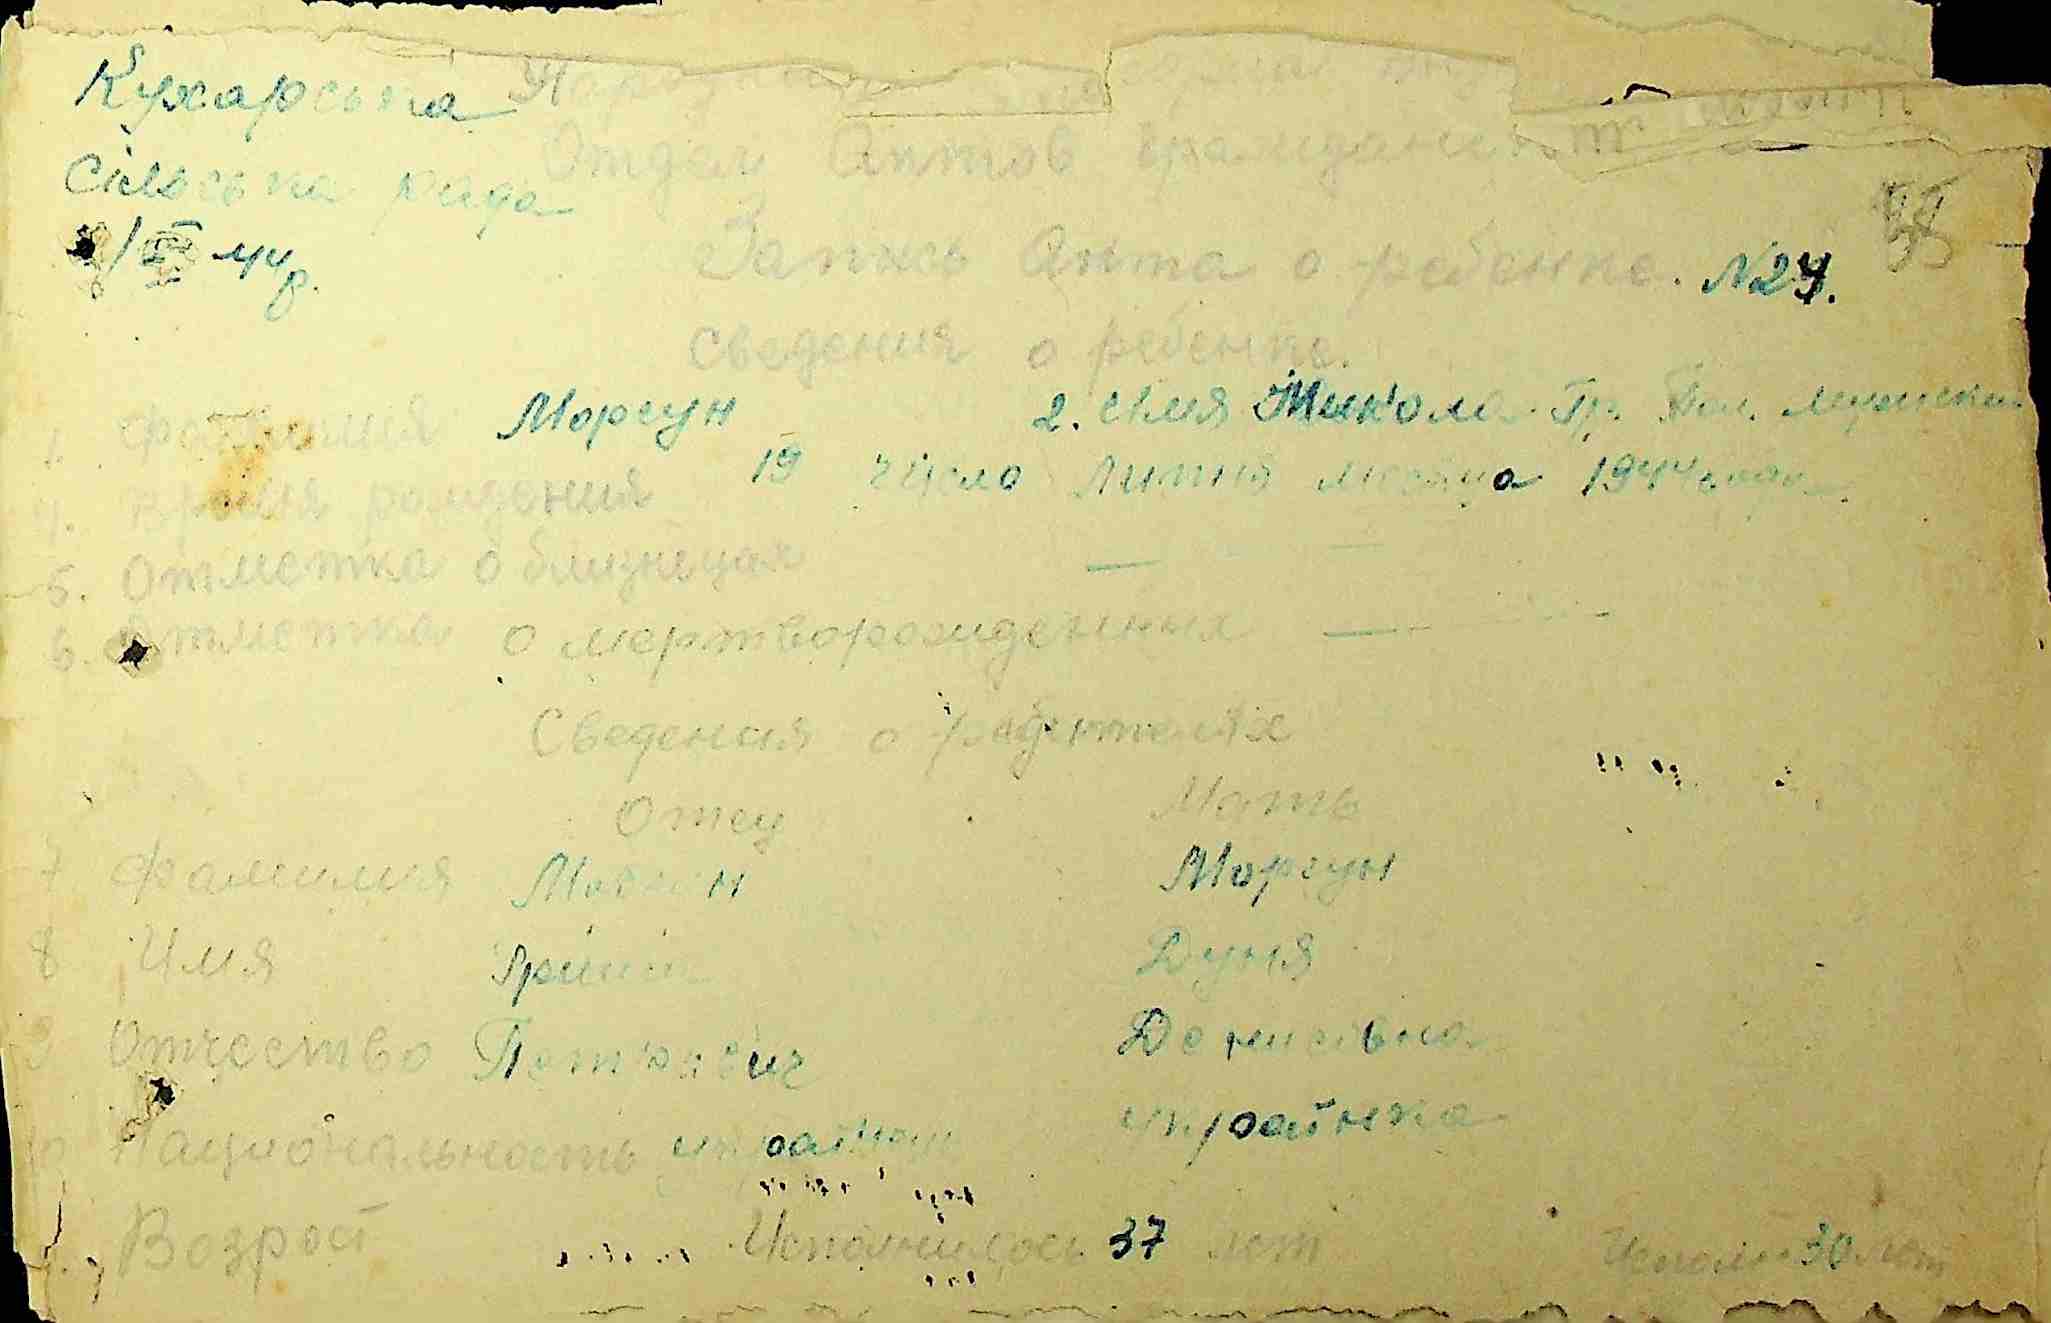 Кухарська
Сільська рада
44 р.
Отдел Актов гражданск
Запись Акта о ребенке. №24.
Сведения о ребенке.
1. Фамилия Моргун 2. Имя Микола Гр. Пол. мужской
4. Время рождения 19 число Липня месяца 1944 года
5. Отметка о близнецах —
6. Отметка о мертворожденных —
Сведения о родителях
Отец Мать
7 Фамилия Моргун Моргун
8 Имя Дуня
9 Отчество Петрович Денисівна
10 Национальность українец українка
Возраст Исполнилось 37 лет Исполн 30 лет